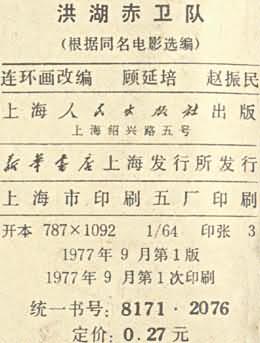 洪湖赤卫队
(根据同名电影选编)
连环画改编 顾延培 赵振民
上海人民出版社出版
上海绍兴路五号
新华书店上海发行所发行
上海市印刷五厂印刷
开本 787×1092 1/64 印张 3
1977年9月第1版
1977年9月第1次印刷
统一书号: 8171·2076
定价: 0.27元